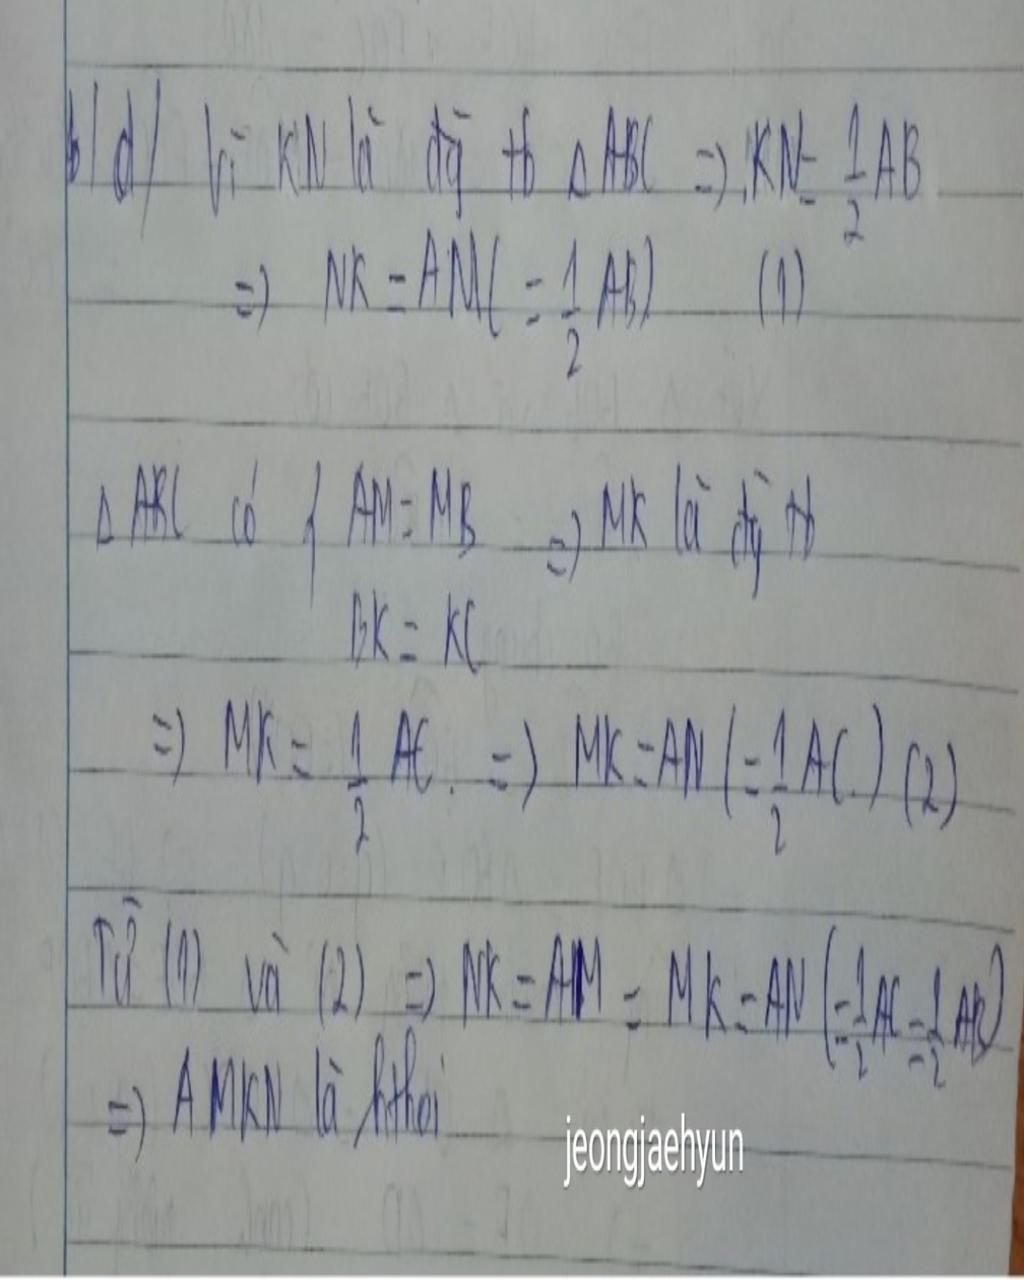 b/d/ Vì KN là đg tb Δ ABC => KN = 1/2 AB
=> NK = AM ( = 1/2 AB) (1)
Δ ABC có { AM = MB => MK là đg tb
BK = KC
=> MK = 1/2 AC. => MK = AN ( = 1/2 AC.) (2)
Từ (1) và (2) => NK = AM = MK = AN ( = 1/2 AC = 1/2 AB)
=> AMKN là hthoi
jeongjaehyun